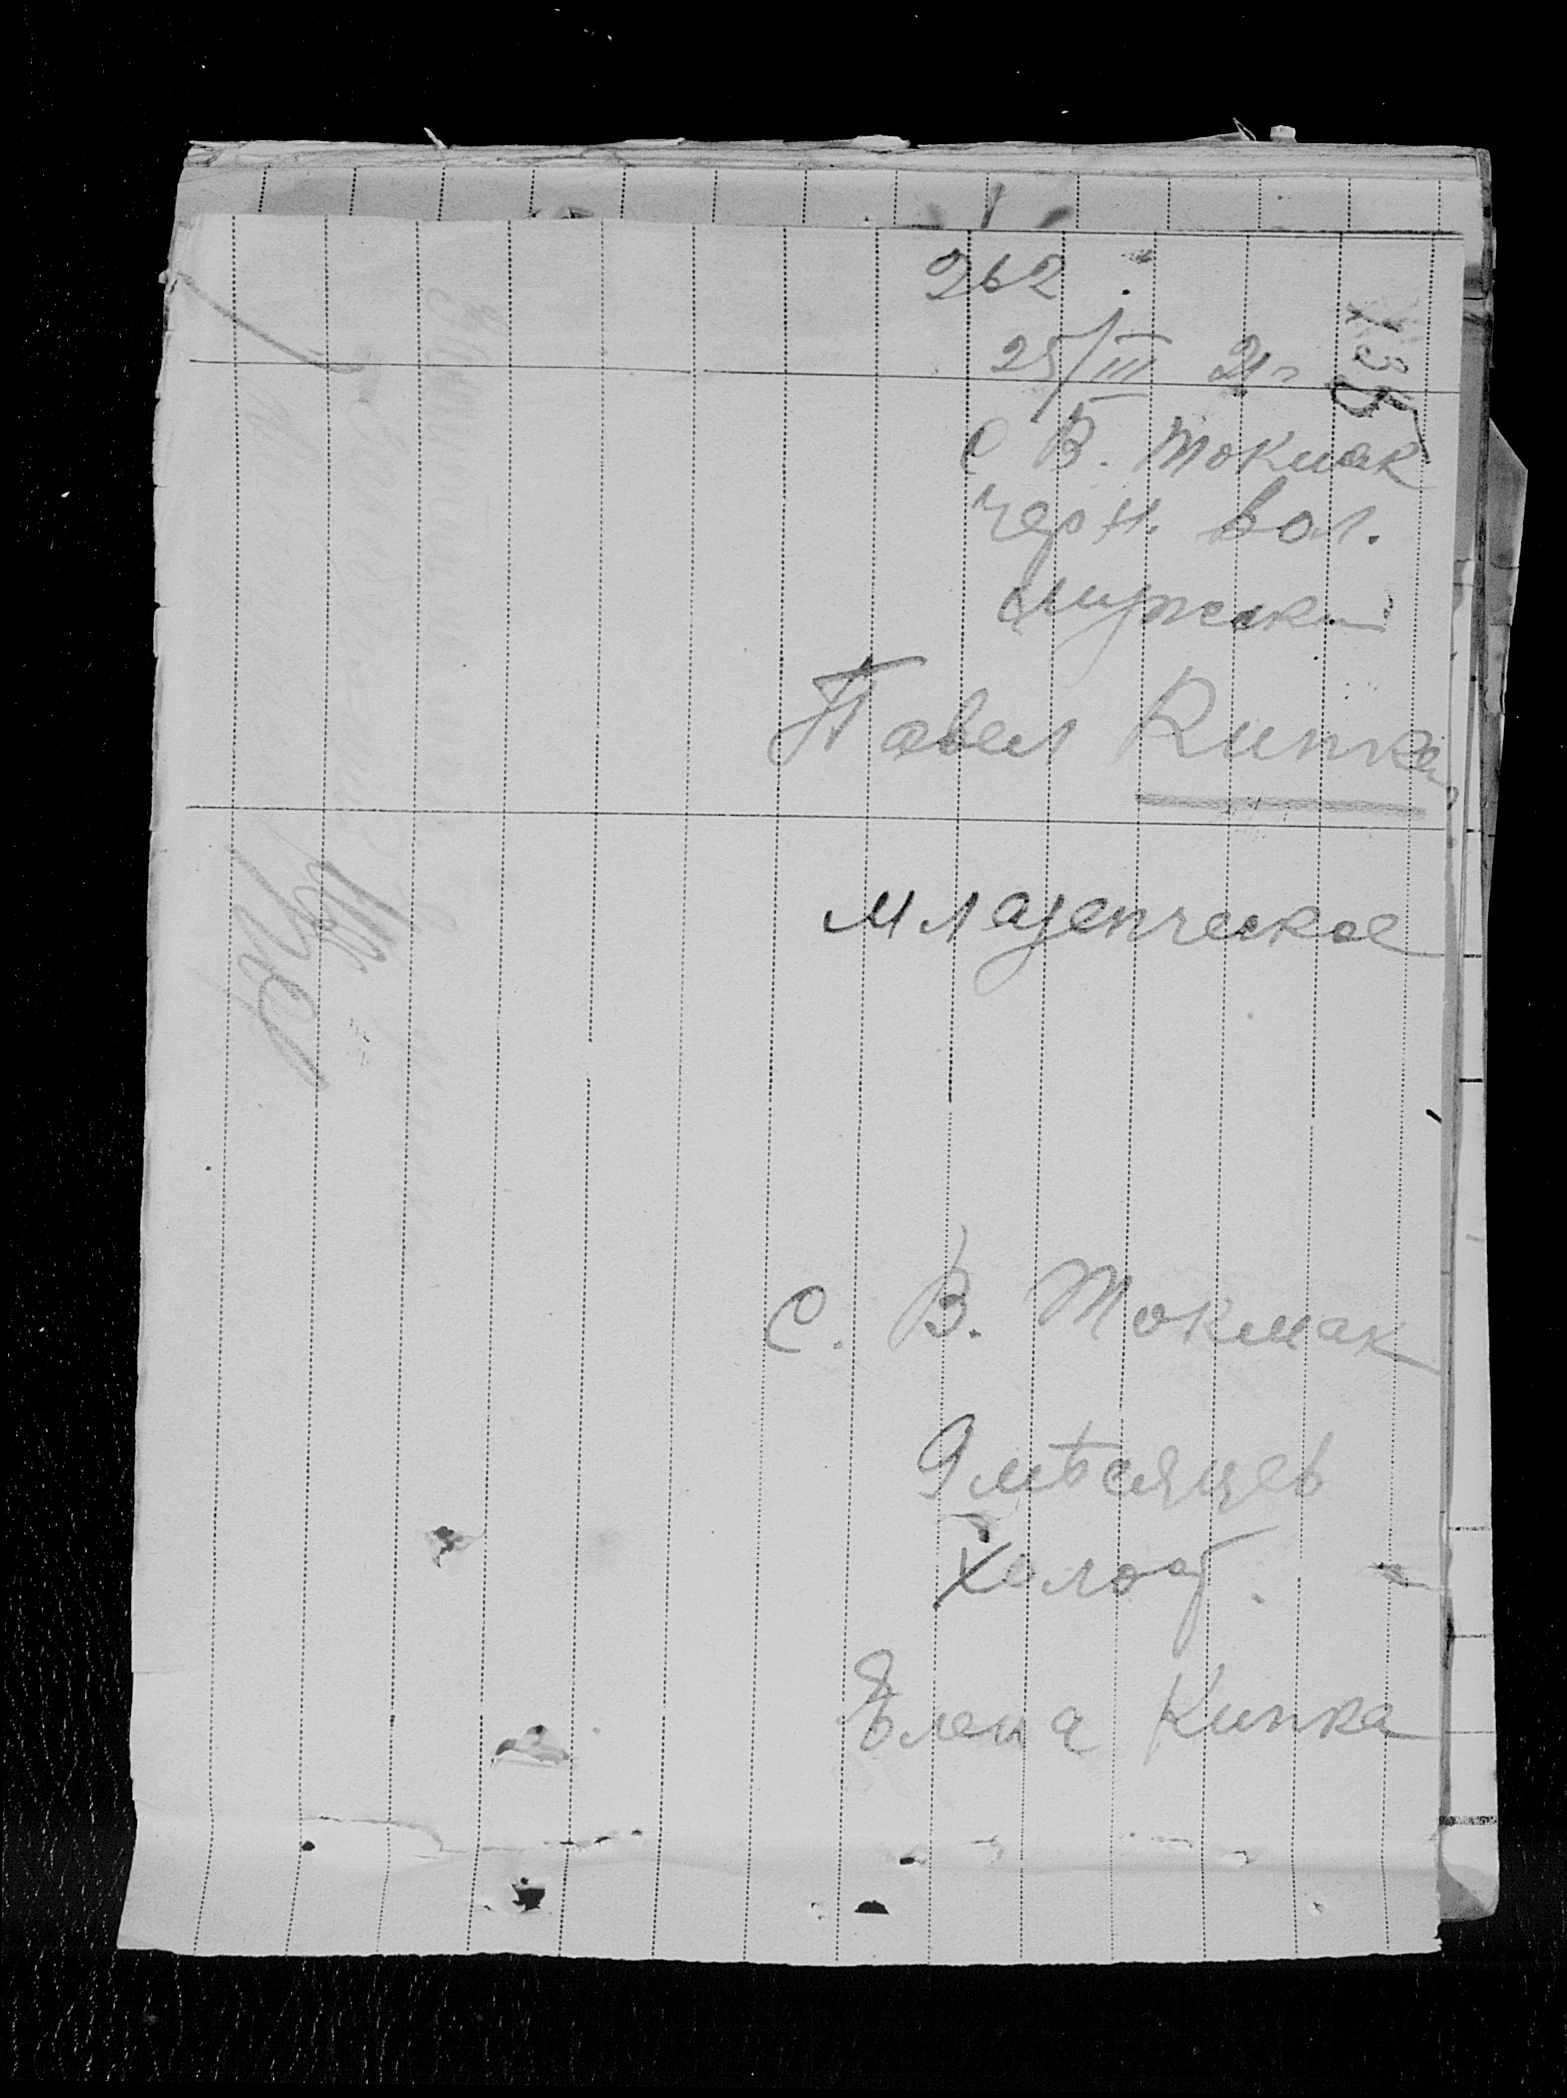 262
25/III 21г
135
с В. Токмак
черн. вол.
мужск
Павел Кипка
младенческое
С. В. Токмак
9 мѣсяцев
холост.
Елена Кипка